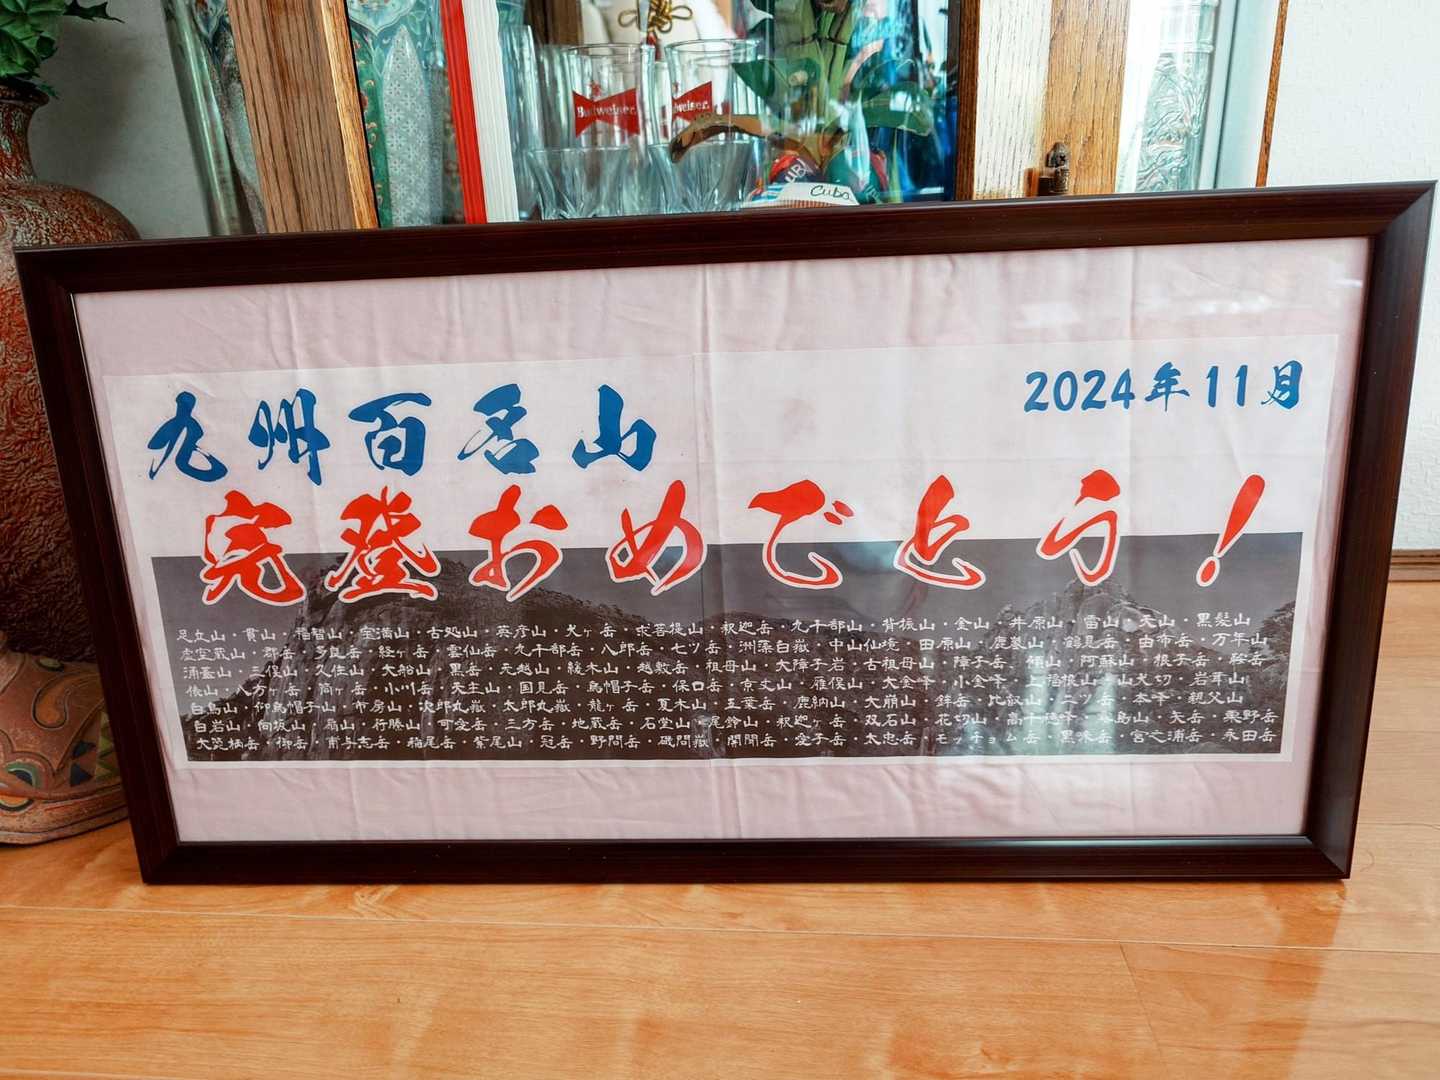 Budweiser.
weiser.
Cuba
2024年11月
九州百名山
完登おめでとう！
足立山・貫山・福智山・宝満山・古処山・英彦山・犬ヶ岳・求菩提山・釈迦岳・九千部山・背振山・金山・井原山・雷山・天山・黒髪山
虚空蔵山・郡岳・多良岳・経ヶ岳・雲仙岳・九千部岳・八郎岳・七ツ岳・洲藻白嶽・中山仙境・田原山・鹿嵐山・鶴見岳・由布岳・万年山
涌蓋山・三俣山・久住山・大船山・黒岳・元越山・縫木山・越敷岳・祖母山・大障子岩・古祖母山・障子岳・傾山・阿蘇山・根子岳・鞍岳
俵山・八方ヶ岳・筒ヶ岳・小川岳・天主山・国見岳・烏帽子岳・保口岳・京丈山・雁俣山・大金峰・小金峰・上福根山・山犬切・岩茸山
白鳥山・仰烏帽子山・市房山・次郎丸嶽・太郎丸嶽・龍ヶ岳・夏木山・五葉岳・鹿納山・大崩山・鉾岳・比叡山・二ツ岳・本峰・親父山
白岩山・向坂山・扇山・行縢山・可愛岳・三方岳・地蔵岳・石堂山・尾鈴山・釈迦ヶ岳・双石山・花切山・高千穂峰・霧島山・矢岳・栗野岳
大箆柄岳・御岳・甫与志岳・稲尾岳・紫尾山・冠岳・野間岳・磯間嶽・開聞岳・愛子岳・太忠岳・モッチョム岳・黒味岳・宮之浦岳・永田岳